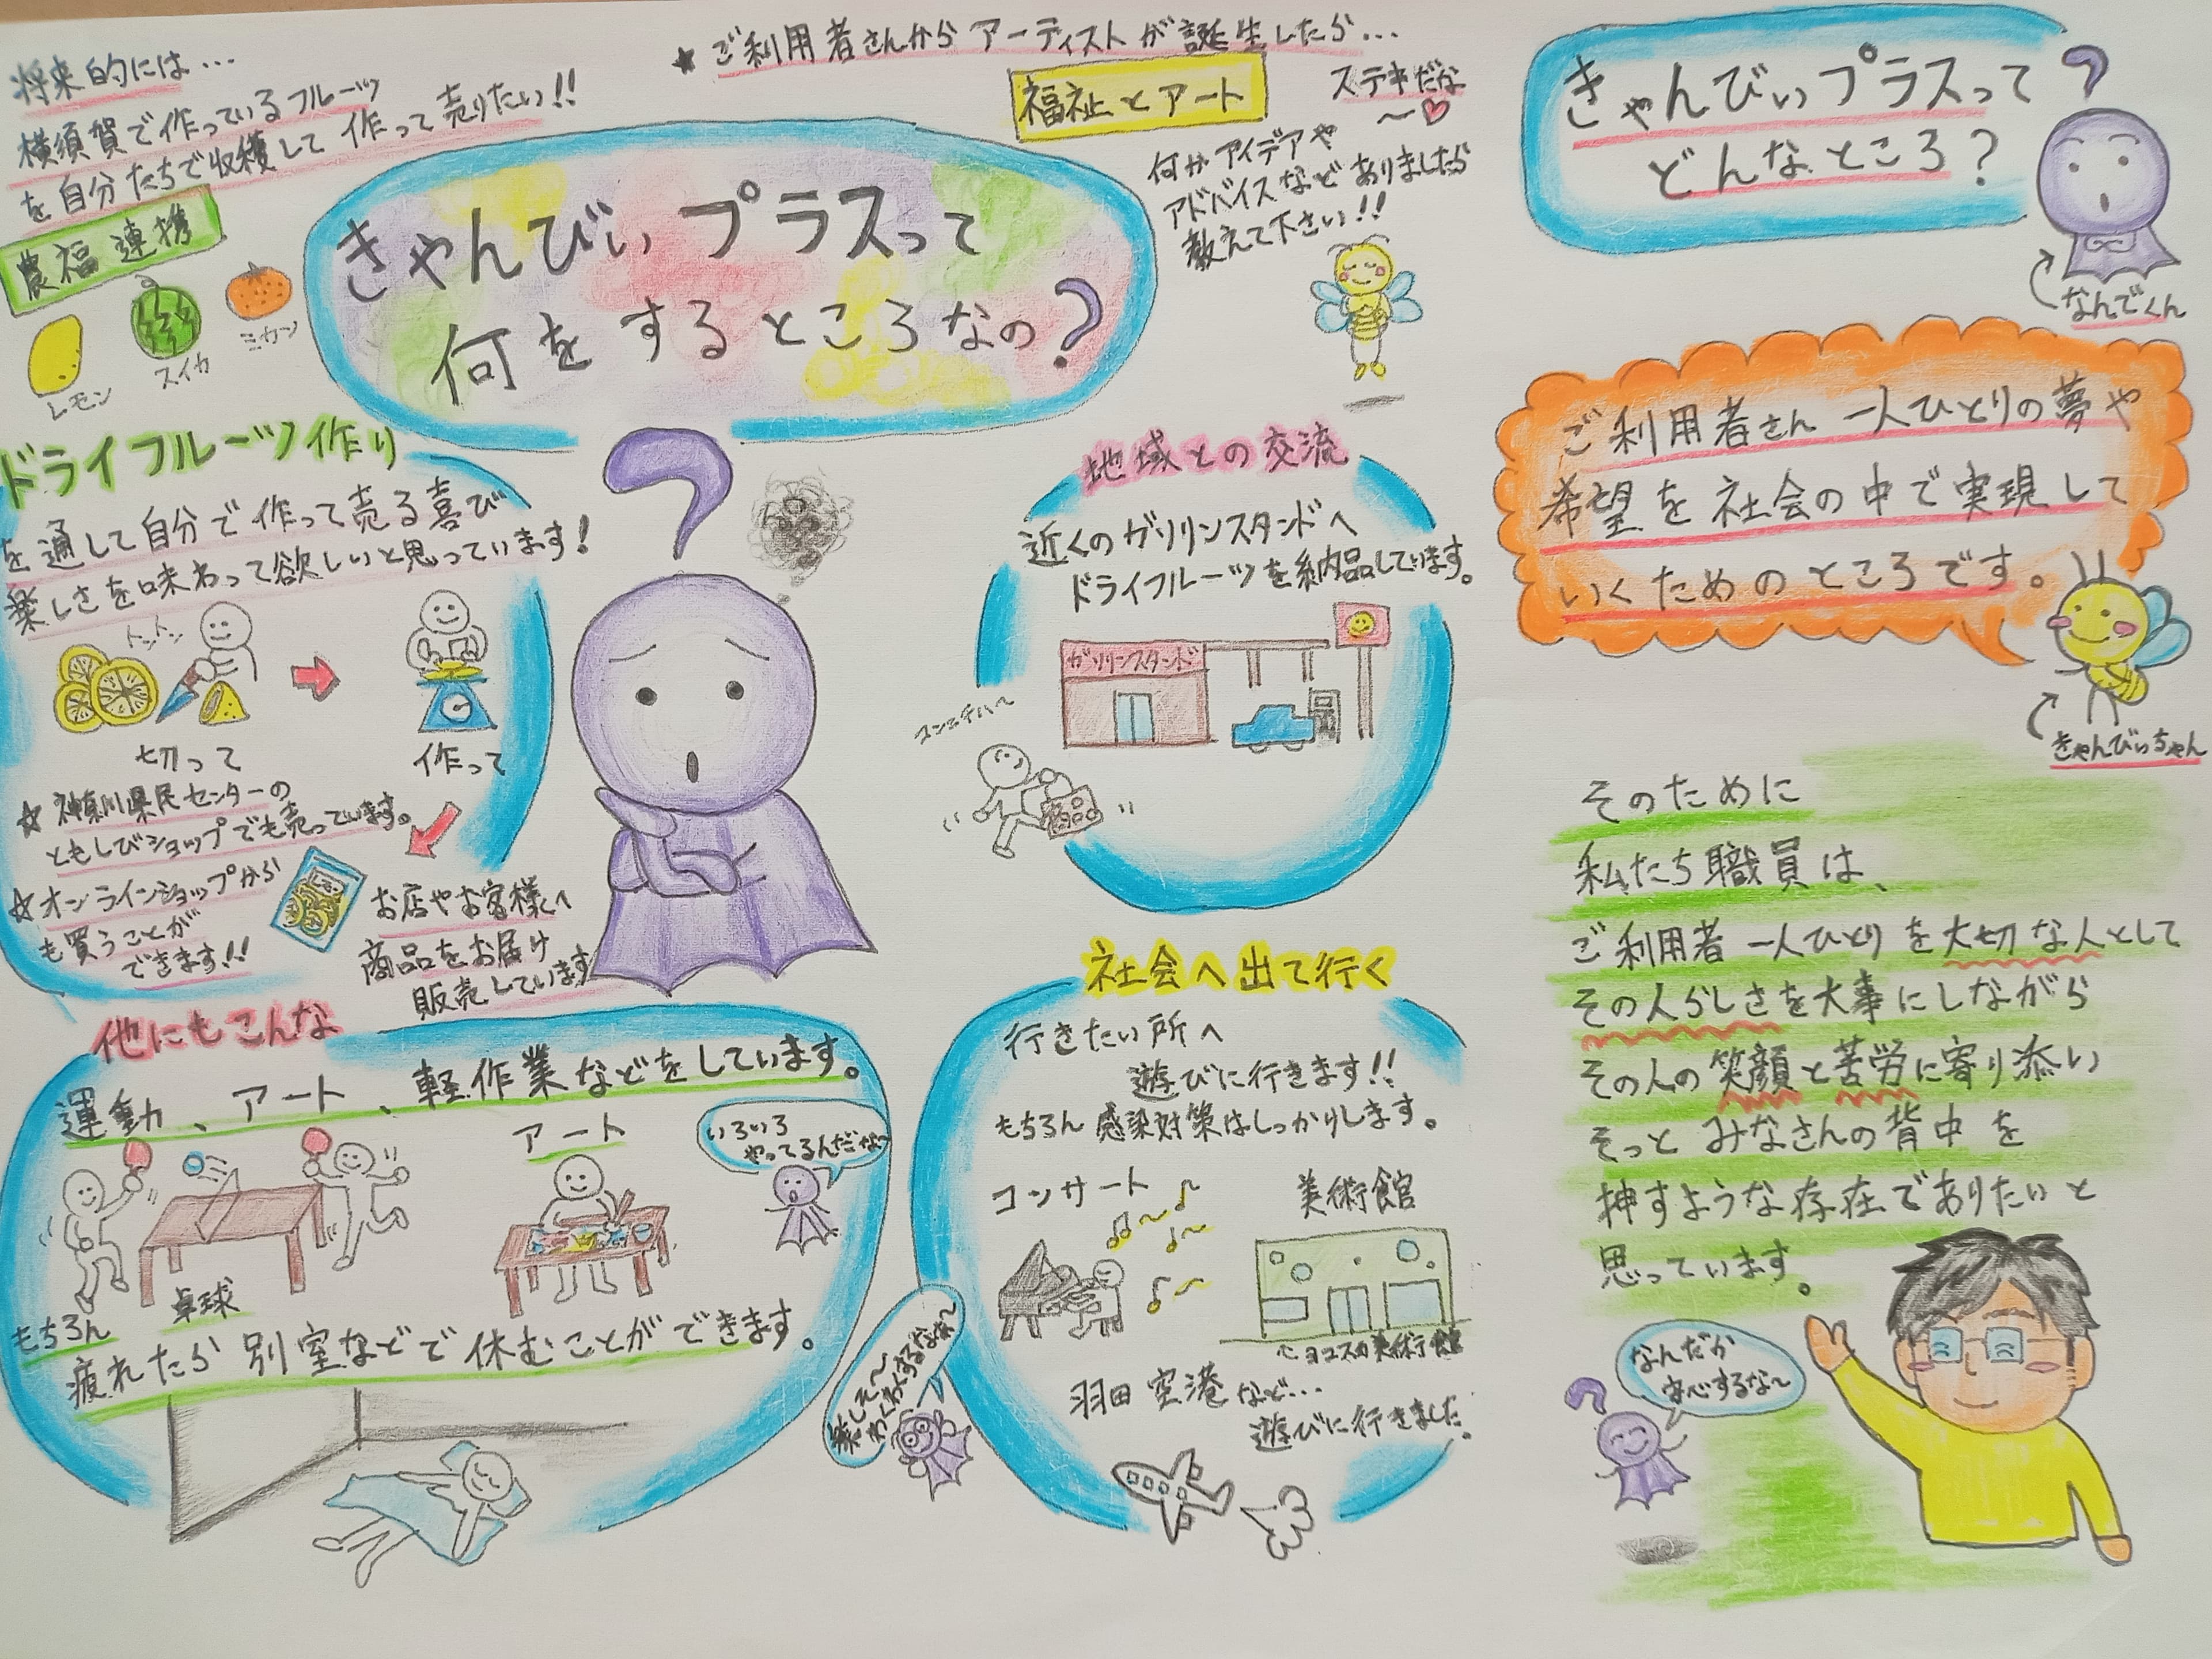 将来的には…
横須賀で作っているフルーツ
を自分たちで収穫して作って売りたい!!
農福連携
レモン
スイカ
ミカン
★ご利用者さんからアーティストが誕生したら…
福祉とアート
ステキだな
〜♡
何かアイデアや
アドバイスなどありましたら
教えて下さい!!
きゃんびぃプラスって
何をするところなの?
ドライフルーツ作り
を通して自分で作って売る喜び
楽しさを味わって欲しいと思っています!
トントン
切って
作って
☆神奈川県民センターの
ともしびショップでも売っています。
☆オンラインショップから
も買うことが
できます!!
お店やお客様へ
商品をお届け
販売しています
地域との交流
近くのガソリンスタンドへ
ドライフルーツを納品しています。
ガソリンスタンド
コンニチハ〜
他にもこんな
運動、アート、軽作業などをしています。
アート
いろいろ
やってるんだな〜
卓球
もちろん
疲れたら別室などで休むことができます。
社会へ出て行く
行きたい所へ
遊びに行きます!!
もちろん感染対策はしっかりします。
コンサート
美術館
ヨコスカ美術館
羽田空港など…
遊びに行きました。
楽しそ〜
わくわくするなぁ〜
きゃんびぃプラスって
どんなところ?
?
なんでくん
ご利用者さん一人ひとりの夢や
希望を社会の中で実現して
いくためのところです。
きゃんびぃちゃん
そのために
私たち職員は、
ご利用者一人ひとりを大切な人として
その人らしさを大事にしながら
その人の笑顔と苦労に寄り添い
そっとみなさんの背中を
押すような存在でありたいと
思っています。
なんだか
安心するな〜